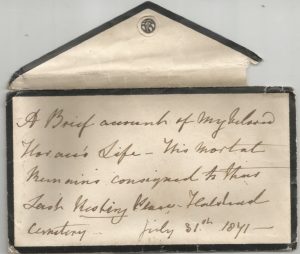 A Brief account of My beloved
Horace's Life – His mortal
Remains consigned to their
Last Resting Place –
Cemetery – July 31st 1871 –